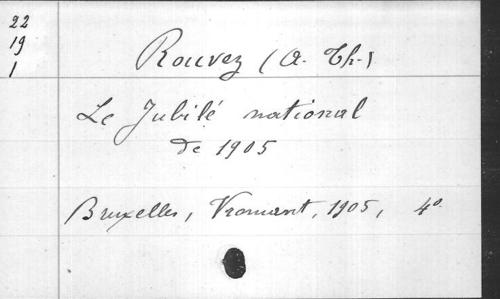 22
19
1
Rouvez (A. Th.)
Le Jubilé national
de 1905
Bruxelles, Vromant, 1905, 4º